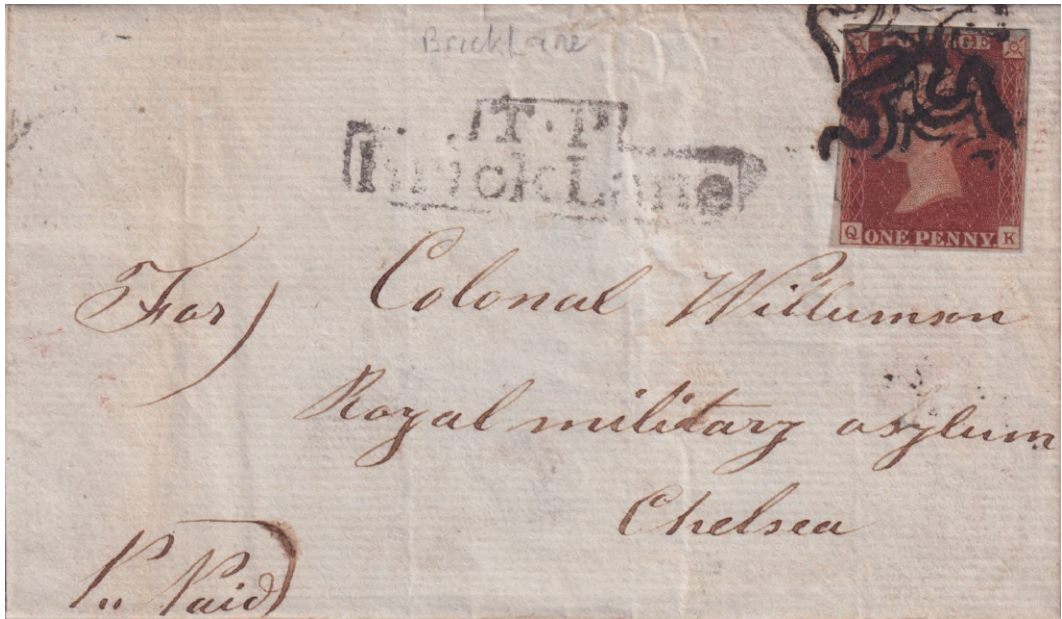 BrickLane
T.P
BrickLane
POSTAGE
Q ONE PENNY. K
For) Colonal Willumson
Royal military asylum
Chelsea
Paid